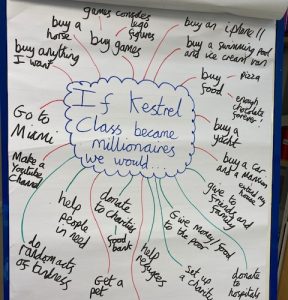 If Kestrel
Class became
millionaires
we would....
games consoles
lego
figures
buy games
buy a
horse
buy anything
I want
Go to
Miami
Make a
Youtube
Channel
do
random acts
of kindness
help
people
in need
donate
to charities
food
bank
Get a
pet
help
refugees
set up
a charity
Give money/food
to the poor
donate
to hospitals
give to
friends and
family
buy a car
and a mansion
house
buy a
yacht
buy
food
pizza
enough
chocolate
forever!
buy a swimming pool
and ice cream van
buy an iphone 11